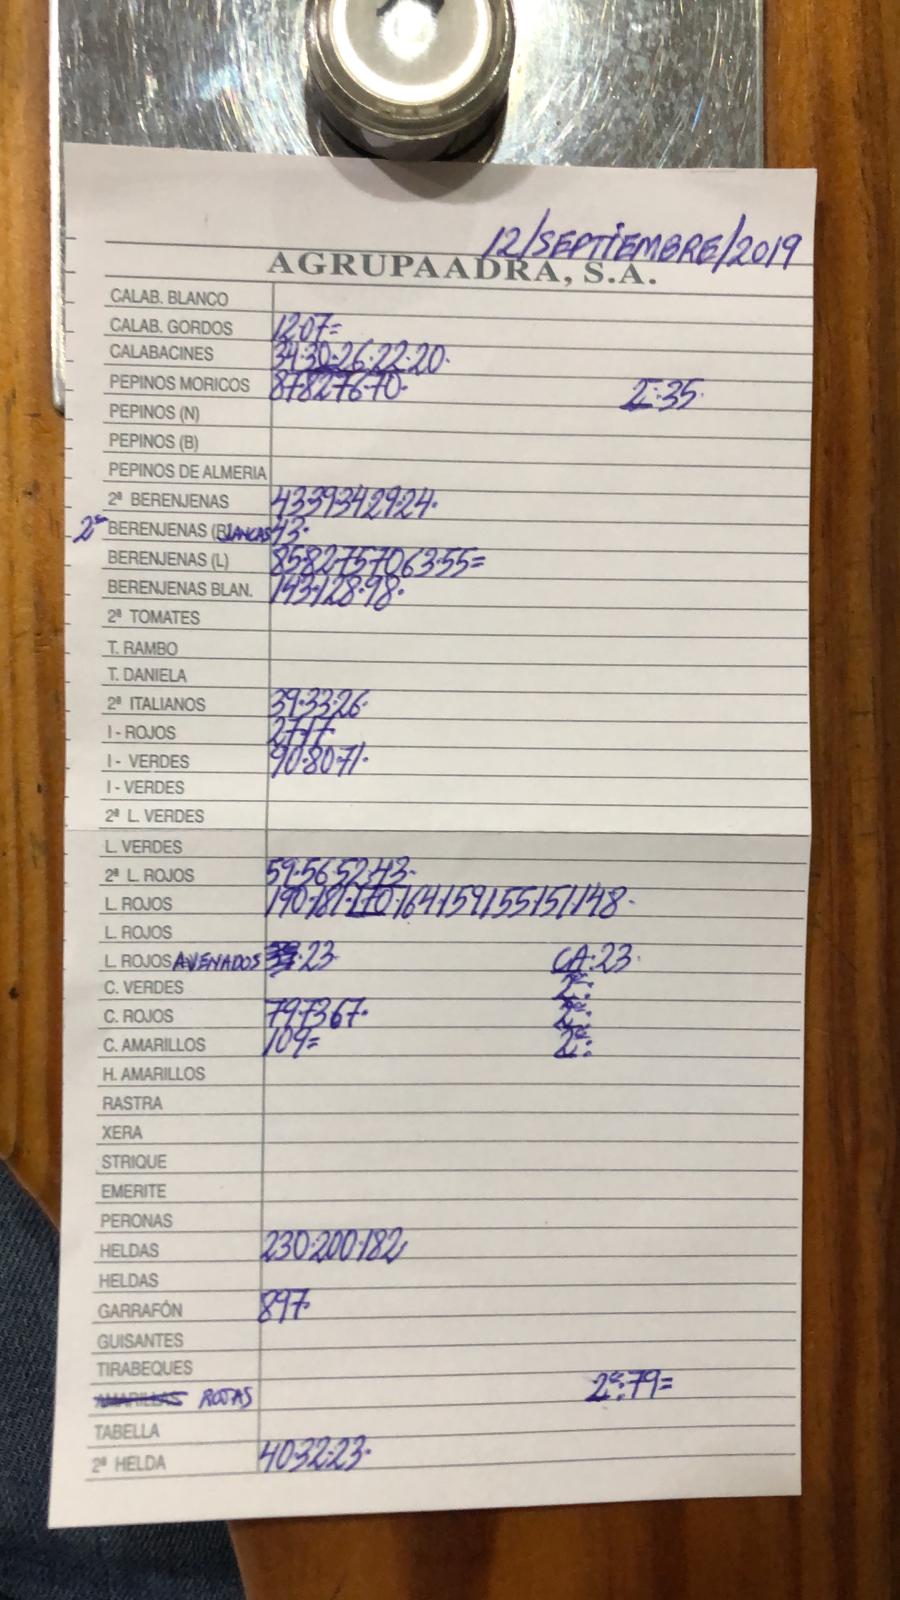 12/SEPTIEMBRE/2019
AGRUPAADRA, S.A.
CALAB. BLANCO
CALAB. GORDOS 12·07=
CALABACINES 34·30·26·22·20·
PEPINOS MORICOS 87·82·76·70· 2ª:35·
PEPINOS (N)
PEPINOS (B)
PEPINOS DE ALMERIA
2ª BERENJENAS 43·39·34·29·24·
2ª BERENJENAS (BLANCAS 43·
BERENJENAS (L) 85·82·75·70·63·55=
BERENJENAS BLAN. 143·128·98·
2ª TOMATES
T. RAMBO
T. DANIELA
2ª ITALIANOS 39·33·26·
I - ROJOS 27·17·
I - VERDES 90·80·71·
I - VERDES
2ª L. VERDES
L. VERDES
2ª L. ROJOS 59·56·52·43·
L. ROJOS 190·181·170·164·159·155·151·148·
L. ROJOS
L. ROJOS AVENADOS ·23· CA:23·
C. VERDES 2ª:
C. ROJOS 79·73·67· 2ª:
C. AMARILLOS 109= 2ª:
H. AMARILLOS
RASTRA
XERA
STRIQUE
EMERITE
PERONAS
HELDAS 230·200·182
HELDAS
GARRAFÓN 897·
GUISANTES
TIRABEQUES
AMARILLAS ROJAS 2ª:79=
TABELLA
2ª HELDA 40·32·23·